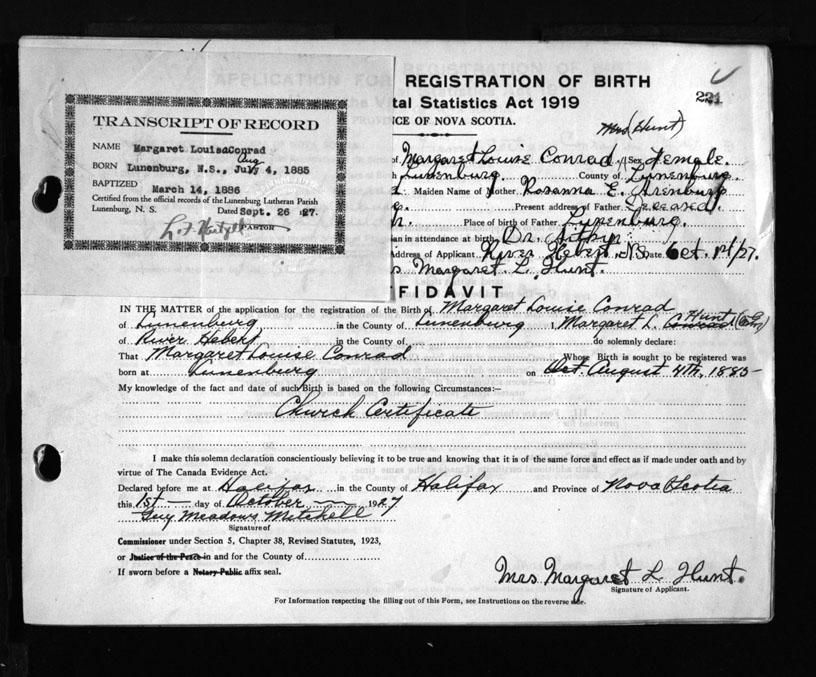 REGISTRATION OF BIRTH
221
tal Statistics Act 1919
NCE OF NOVA SCOTIA.
Mrs (Hunt)
TRANSCRIPT OF RECORD
NAME Margaret Louise Conrad
Aug
BORN Lunenburg, N.S., July 4, 1885
BAPTIZED March 14, 1886
Certified from the official records of the Lunenburg Lutheran Parish
Lunenburg, N. S. Dated Sept. 26 27.
PASTOR
of Margaret Louise Conrad Sex Female.
Lunenburg. County of Lunenburg.
Maiden Name of Mother Rosanna E. Arenburg
Present address of Father Deceased.
Place of birth of Father Lunenburg.
an in attendance at birth Dr. Aitken
Address of Applicant River Hebert, N.S. Date Oct. 1st/27.
s Margaret L. Hunt.
FFIDAVIT
IN THE MATTER of the application for the registration of the Birth of Margaret Louise Conrad
of Lunenburg in the County of Lunenburg I, Margaret L. Conrad Hunt
of River Hebert in the County of do solemnly declare:
That Margaret Louise Conrad Whose Birth is sought to be registered was
born at Lunenburg on Oct. August 4th, 1885
My knowledge of the fact and date of such Birth is based on the following Circumstances:—
Church Certificate
I make this solemn declaration conscientiously believing it to be true and knowing that it is of the same force and effect as if made under oath and by
virtue of The Canada Evidence Act.
Declared before me at Halifax in the County of Halifax and Province of Nova Scotia
this 1st day of October 1927
Guy Meadows Mitchell
Signature of
Commissioner under Section 5, Chapter 38, Revised Statutes, 1923,
or Justice of the Peace in and for the County of
If sworn before a Notary Public affix seal.
Mrs. Margaret L Hunt.
Signature of Applicant.
For Information respecting the filling out of this Form, see Instructions on the reverse side.